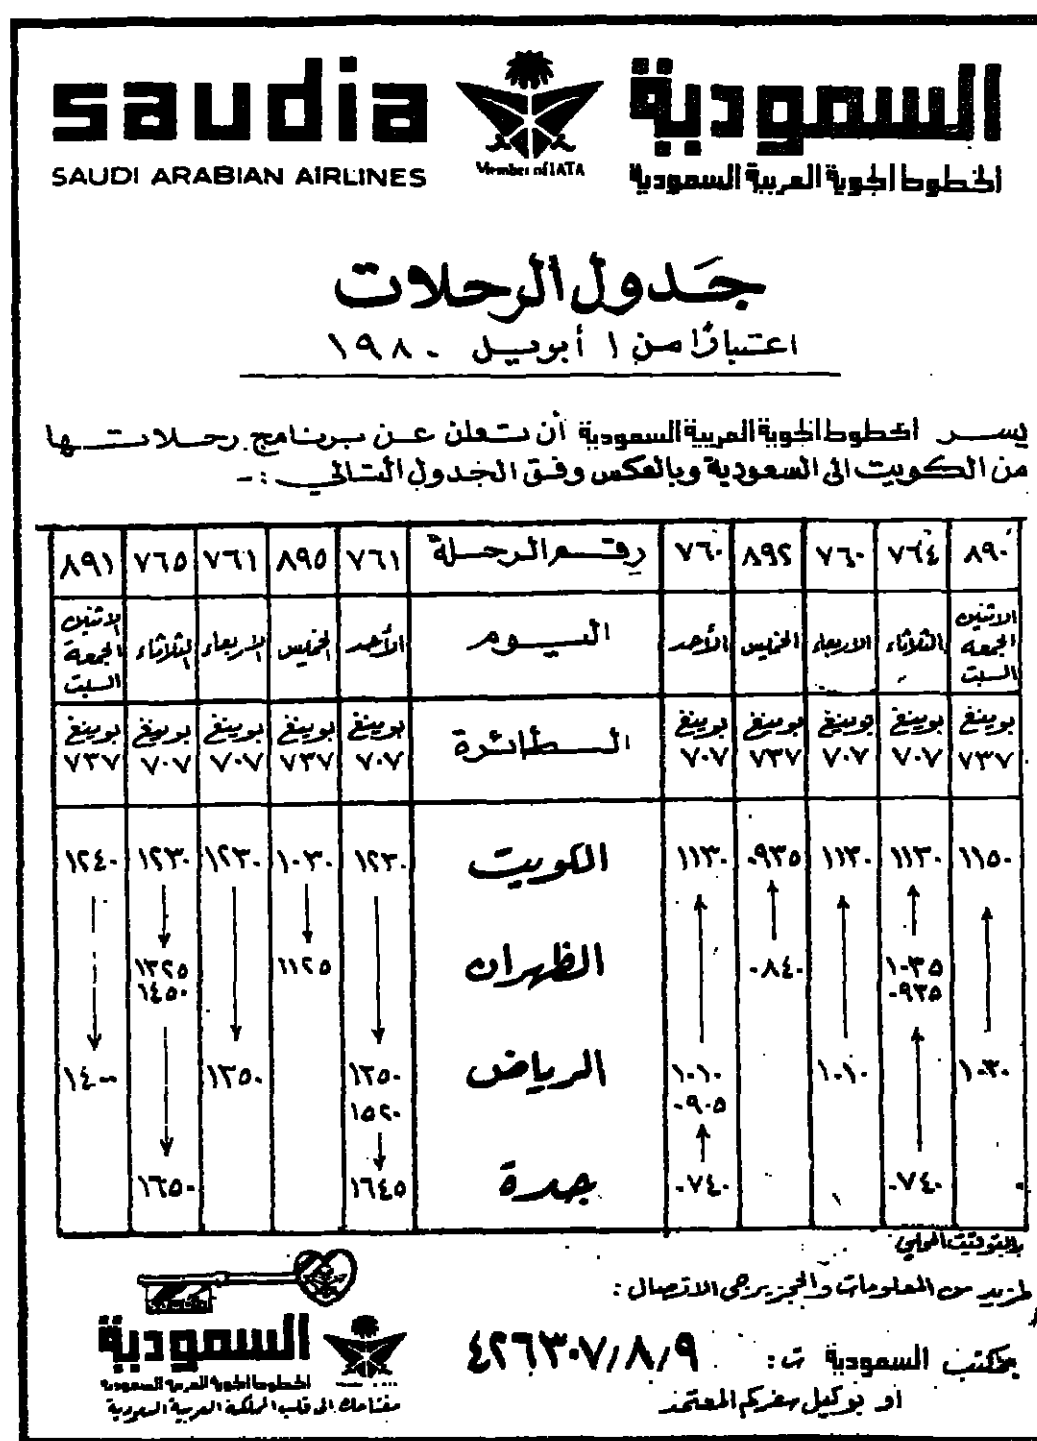 saudia
SAUDI ARABIAN AIRLINES
Member of IATA
السعودية
الخطوط الجوية العربية السعودية
جدول الرحلات
اعتبارًا من ١ أبريل ١٩٨٠
يسر الخطوط الجوية العربية السعودية أن تعلن عن برنامج رحلاتها
من الكويت الى السعودية وبالعكس وفق الجدول التالي :-
٨٩٠ ٧٦٤ ٧٦٠ ٨٩٢ ٧٦٠ رقم الرحلة ٧٦١ ٨٩٥ ٧٦١ ٧٦٥ ٨٩١
الاثنين الجمعة السبت الثلاثاء الاربعاء الخميس الأحد اليوم الأحد الخميس الاربعاء الثلاثاء الاثنين الجمعة السبت
بوينغ ٧٣٧ بوينغ ٧٠٧ بوينغ ٧٠٧ بوينغ ٧٣٧ بوينغ ٧٠٧ الطائرة بوينغ ٧٠٧ بوينغ ٧٣٧ بوينغ ٧٠٧ بوينغ ٧٠٧ بوينغ ٧٣٧
١١٥٠ ١١٣٠ ١١٣٠ ٠٩٣٥ ١١٣٠ الكويت ١٢٣٠ ١٠٣٠ ١٢٣٠ ١٢٣٠ ١٢٤٠
١٠٣٥ ٠٨٤٠ الظهران ١١٢٥ ١٣٢٥
٠٩٣٥ ١٤٥٠
١٠٣٠ ١٠١٠ ١٠١٠ الرياض ١٣٥٠ ١٣٥٠ ١٤٠٠
٠٩٠٥ ١٥٢٠
٠٧٤٠ ٠٧٤٠ جدة ١٦٤٥ ١٦٥٠
بالتوقيت المحلي
لمزيد من المعلومات والحجز يرجى الاتصال :
بمكتب السعودية ت: ٤٢٦٣٠٧/٨/٩
او بوكيل سفركم المعتمد
السعودية
الخطوط الجوية العربية السعودية
مفتاحك الى قلب المملكة العربية السعودية